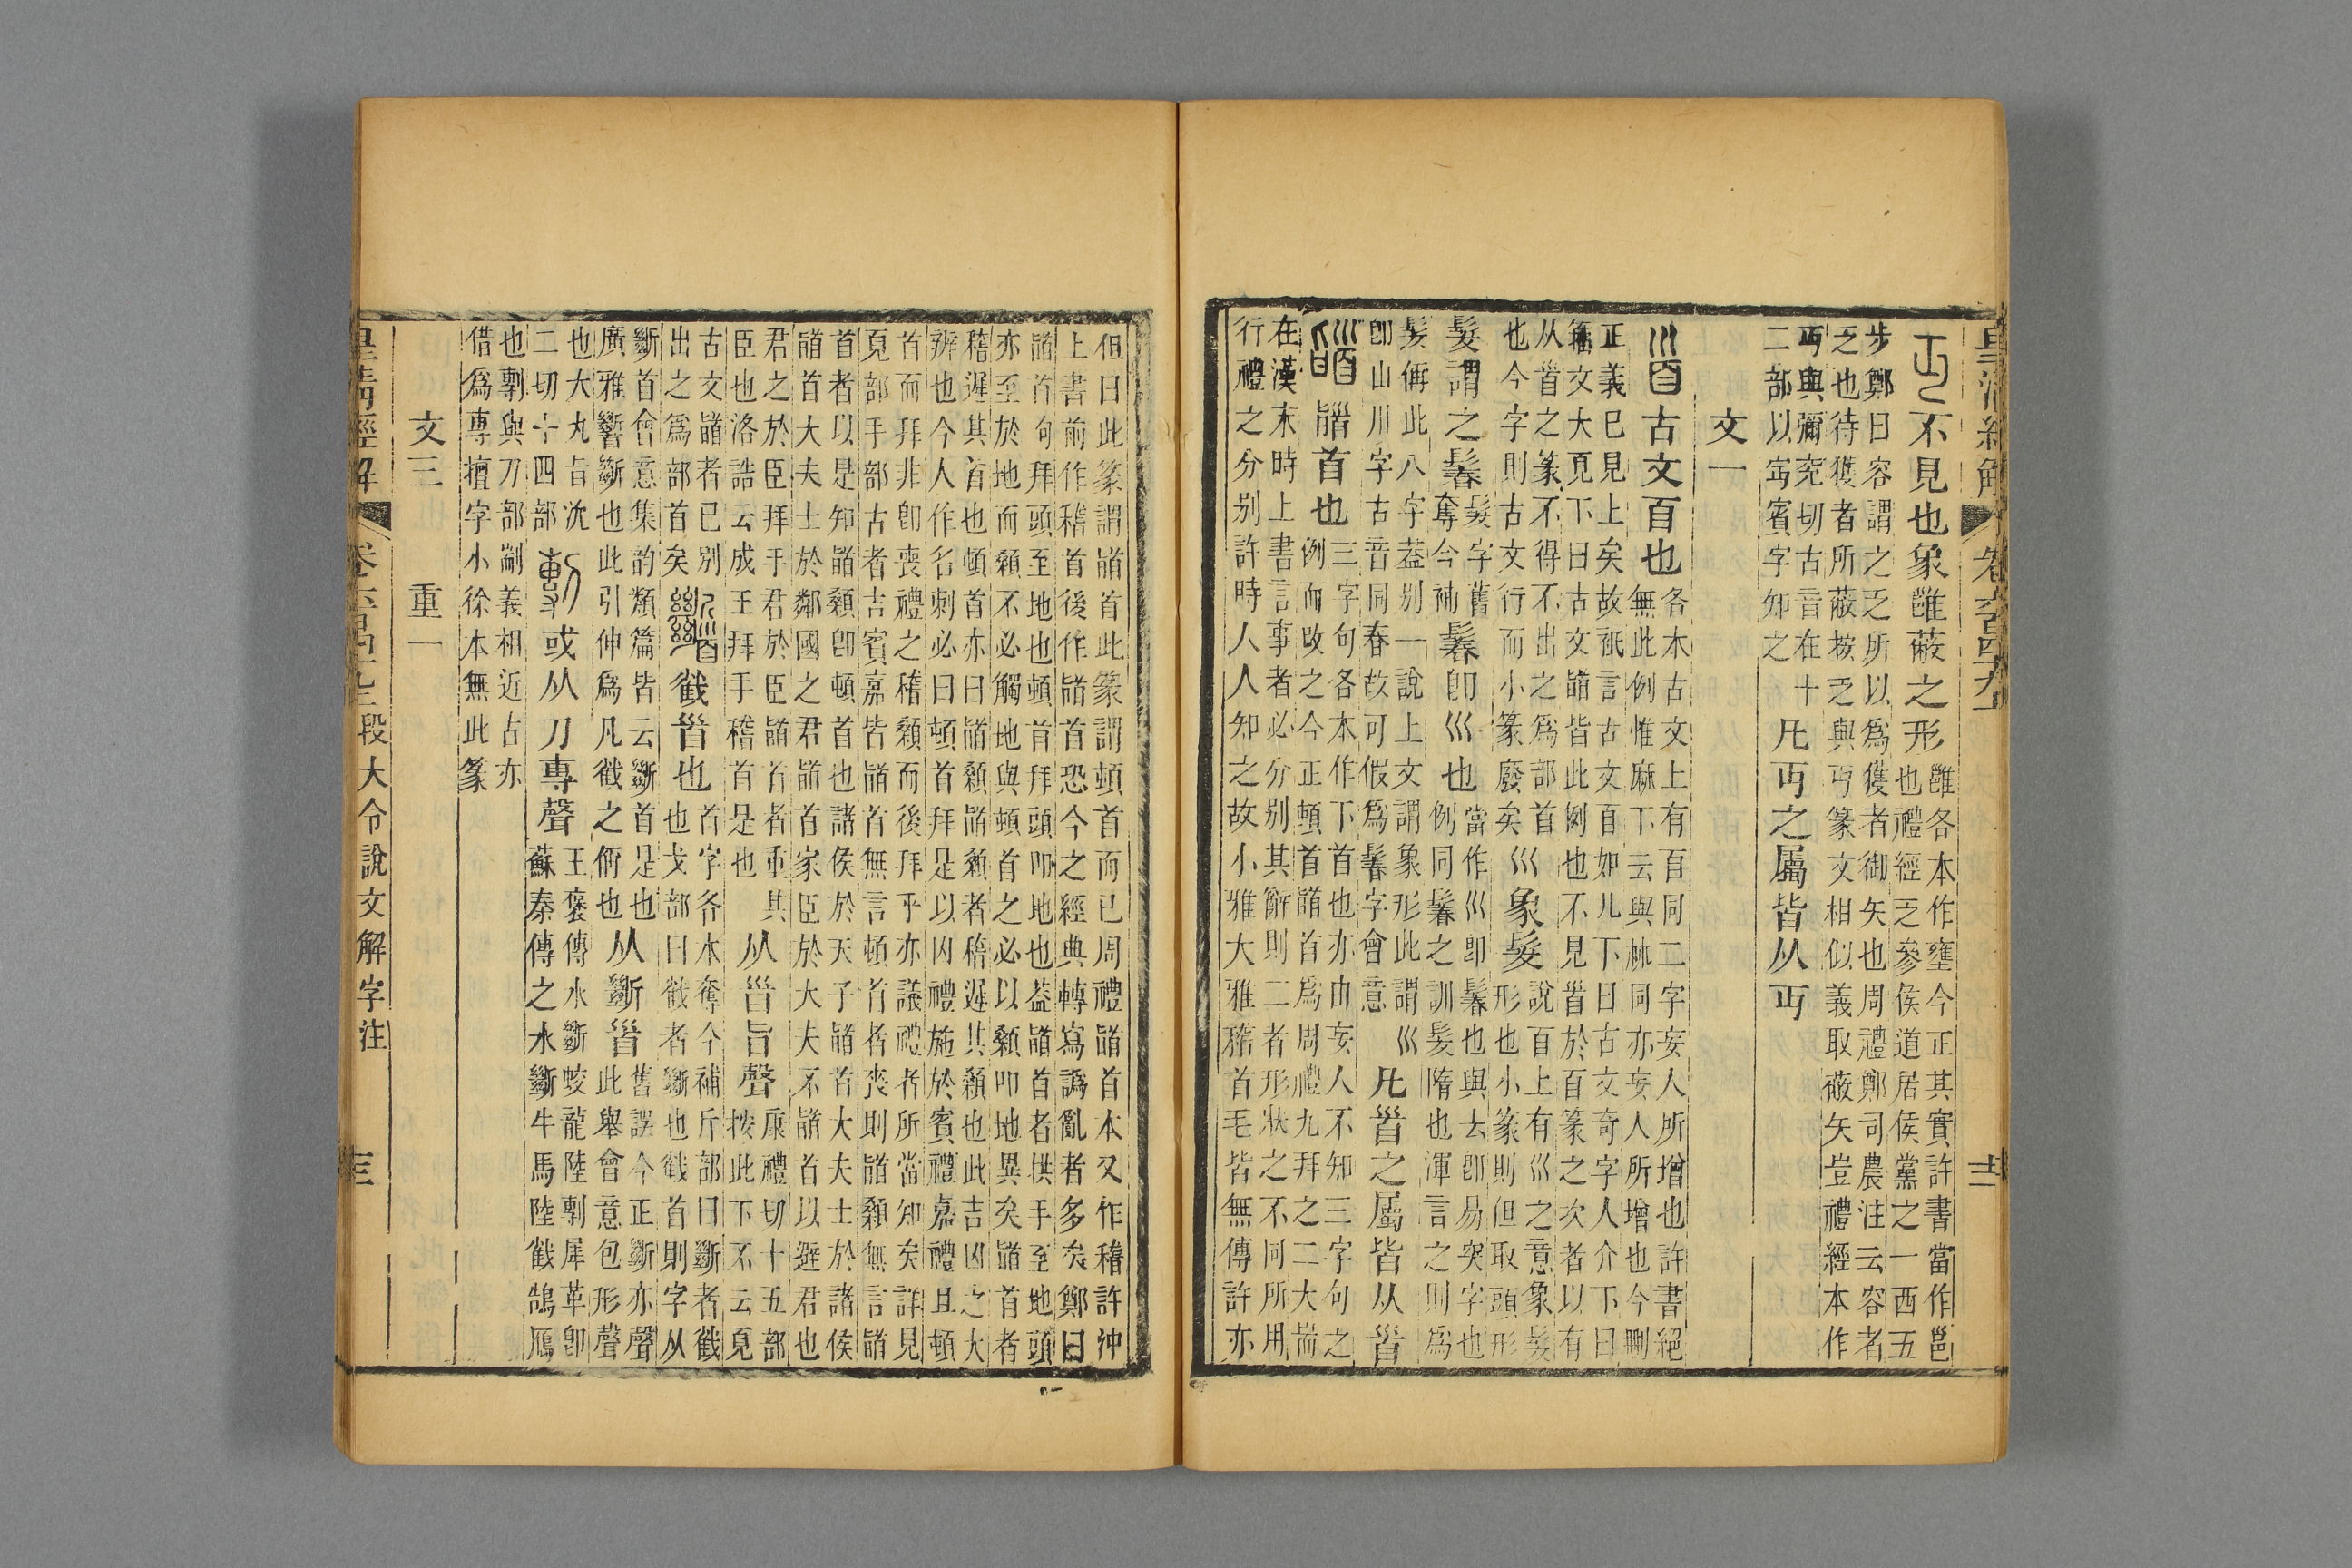 皇清經解 卷六百四十九上 十二
丏不見也象雝蔽之形
雝各本作壅今正其實許書當作邕
也禮經乏參侯道居侯黨之一西五
步鄭曰容謂之乏所以爲獲者御矢也周禮鄭司農注云容者
乏也待獲者所蔽按乏與丏篆文相似義取蔽矢豈禮經本作
丏與彌兖切古音在十
二部以㝉賓字知之
凡丏之屬皆从丏
文一
𩠐古文百也
各本古文上有百同二字妄人所增也許書絕
無此例惟麻下云與𣏟同亦妄人所增也今刪
正義已見上矣故祇言古文百如儿下曰古文奇字人介下曰
籒文大𩑋下曰古文䭫皆此例也不見𩠐於百篆之次者以有
从𩠐之篆不得不出之爲部首
也今字則古文行而小篆廢矣
巛象髮
說百上有巛之意象髮
形也小篆則但取頭形
髮謂之鬊
髮字舊
奪今補
鬊卽巛也
當作巛卽鬊也與𠫓卽易突字也
例同鬊之訓髮隋也渾言之則爲
髮偁此八字葢別一說上文謂象形此謂巛
卽山川字古音同春故可假爲鬊字會意
凡𩠐之屬皆从𩠐
䭫䭫首也
三字句各本作下首也亦由妄人不知三字句之
例而改之今正頓首䭫首爲周禮九拜之二大耑
在漢末時上書言事者必分別其辭則二者形狀之不同所用
行禮之分別許時人人知之故小雅大雅稽首毛皆無傳許亦
但曰此篆謂䭫首此篆謂頓首而已周禮䭫首本又作稽許沖
上書前作稽首後作䭫首恐今之經典轉寫譌亂者多矣鄭曰
䭫首句拜頭至地也頓首拜頭叩地也葢䭫首者拱手至地頭
亦至於地而顙不必觸地與頓首之必以顙叩地異矣䭫首者
稽遲其首也頓首亦曰䭫顙䭫顙者稽遲其顙也此吉凶之大
辨也今人作名刺必曰頓首拜是以凶禮施於賓禮嘉禮且頓
首而拜非卽喪禮之稽顙而後拜乎亦議禮者所當知矣詳見
𩑋部手部古者吉賓嘉皆䭫首無言頓首者喪則䭫顙無言䭫
首者以是知䭫顙卽頓首也諸侯於天子䭫首大夫士於諸侯
䭫首大夫士於鄰國之君䭫首家臣於大夫不䭫首以避君也
君之於臣拜手君於臣䭫首者重其
臣也洛誥云成王拜手稽首是也
从𩠐旨聲
康禮切十五部
按此下不云𩑋
古文䭫者已別
出之爲部首矣
𩠹𢧵𩠐也
首字各本奪今補斤部曰斷者𢧵
也戈部曰𢧵者斷也𢧵首則字从
斷首會意集韵類篇皆云斷首是也
廣雅𩠹斷也此引伸爲凡𢧵之偁也
从斷𩠐
舊誤今正斷亦聲
此舉會意包形聲
也大丸旨沇
二切十四部
剸或从刀專聲
王褒傳水斷蛟龍陸剸犀革卽
蘇秦傳之水斷牛馬陸𢧵鵠鴈
也剸與刀部㓸義相近古亦
借爲專擅字小徐本無此篆
文三 重一
皇清經解 卷六百四十九上 段大令說文解字注 十三